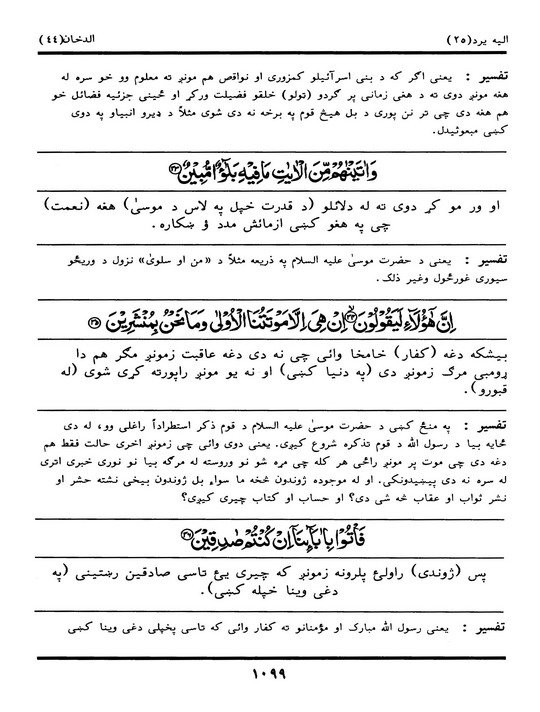 اليه يرد(٢٥)
الدخان(٤٤)
تفسير : يعنى اگر که د بنى اسرآئيلو کمزورى او نواقص هم مونږ ته معلوم وو خو سره له
هغه مونږ دوى ته د هغى زمانى پر گردو (تولو) خلقو فضيلت ورکړ او ځينى جزئيه فضائل خو
هم هغه دى چى تر نن پورى د بل هيڅ قوم په برخه نه دى شوى مثلاً د ډيرو انبياو په دوى
کښى مبعوثيدل.
وَاٰتَيْنٰهُمْ مِّنَ الْاٰيٰتِ مَا فِيْهِ بَلٰٓؤٌا مُّبِيْنٌ ﴿٣٣﴾
او ور مو کړ دوى ته له دلائلو (د قدرت خپل په لاس د موسىٰ) هغه (نعمت)
چى په هغو کښى ازمائش مدد ؤ ښکاره.
تفسير : يعنى د حضرت موسىٰ عليه السلام په ذريعه مثلاً د «من او سلوىٰ» نزول د وريځو
سيورى غورځول وغير ذلک.
اِنَّ هٰٓؤُلَآءِ لَيَقُوْلُوْنَ ﴿٣٤﴾ اِنْ هِىَ اِلَّا مَوْتَتُنَا الْاُوْلٰى وَمَا نَحْنُ بِمُنْشَرِيْنَ ﴿٣٥﴾
بيشکه دغه (کفار) خامخا وائى چى نه دى دغه عاقبت زمونږ مگر هم دا
ړومبى مرگ زمونږ دى (په دنيا کښى) او نه يو مونږ راپورته کړى شوى (له
قبورو).
تفسير : په منځ کښى د حضرت موسىٰ عليه السلام د قوم ذکر استطراداً راغلى وو، له دى
ځايه بيا د رسول الله د قوم تذکره شروع کيږى. يعنى دوى وائى چى زمونږ اخرى حالت فقط هم
دغه دى چى موت پر مونږ راځى هر کله چى مړه شو نو وروسته له مرگه بيا نو نورى خبرى اترى
له سره نه دى پيښيدونکى. او له موجوده ژوندون څخه ما سواء بل ژوندون بيخى نشته حشر او
نشر ثواب او عقاب څه شى دى؟ او حساب او کتاب چيرى کيږى؟
فَاْتُوْا بِاٰبَآئِنَآ اِنْ كُنْتُمْ صٰدِقِيْنَ ﴿٣٦﴾
پس (ژوندى) راولئ پلرونه زمونږ که چيرى يئ تاسى صادقين رښتينى (په
دغى وينا خپله کښى).
تفسير : يعنى رسول الله مبارک او مؤمنانو ته کفار وائى که تاسى پخپلى دغى وينا کښى
١٠٩٩